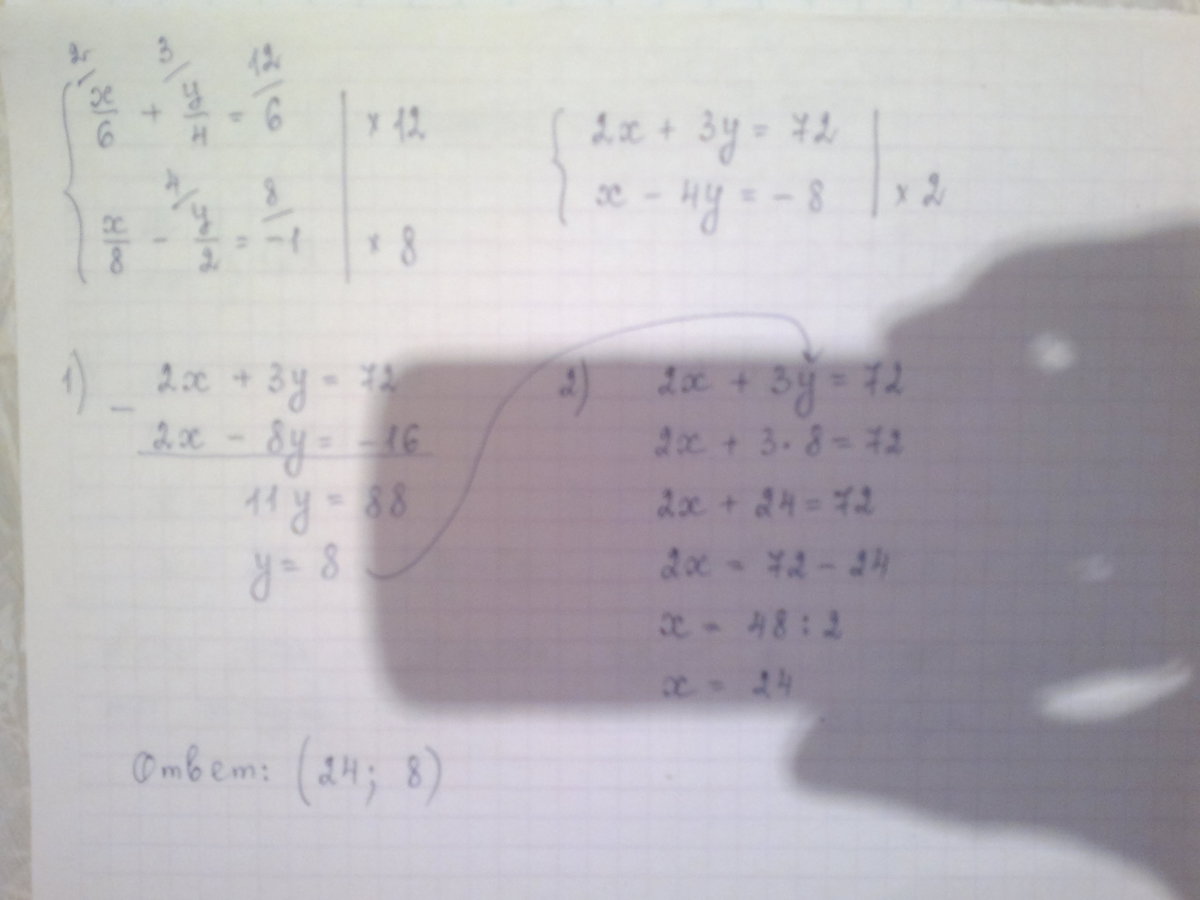 2 3 12
x/6 + y/4 = 6 | × 12
4 8
x/8 - y/2 = -1 | × 8
2x + 3y = 72
x - 4y = -8 | × 2
1) - 2x + 3y = 72
2x - 8y = -16
11y = 88
y = 8
2) 2x + 3y = 72
2x + 3·8 = 72
2x + 24 = 72
2x = 72 - 24
x = 48 : 2
x = 24
Ответ: (24; 8)